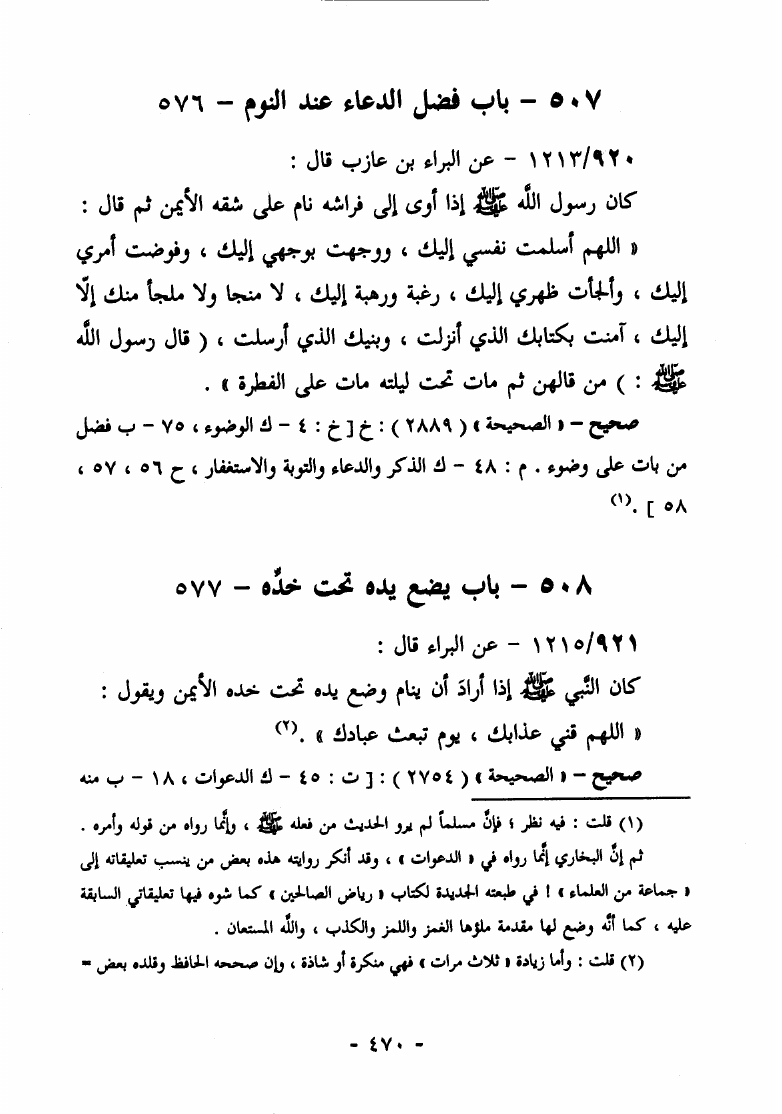 ٥٠٧ - باب فضل الدعاء عند النوم - ٥٧٦
١٢١٣/٩٢٠ - عن البراء بن عازب قال :
كان رسول اللَّه ﷺ إذا أوى إلى فراشه نام على شقه الأيمن ثم قال :
« اللهم أسلمت نفسي إليك ، ووجهت بوجهي إليك ، وفوضت أمري
إليك ، وألجأت ظهري إليك ، رغبة ورهبة إليك ، لا منجا ولا ملجأ منك إلَّا
إليك ، آمنت بكتابك الذي أنزلت ، وبنيك الذي أرسلت ، ( قال رسول اللَّه
ﷺ : ) من قالهن ثم مات تحت ليلته مات على الفطرة » .
صحيح - « الصحيحة » ( ٢٨٨٩ ) : خ [ خ : ٤ - ك الوضوء ، ٧٥ - ب فضل
من بات على وضوء . م : ٤٨ - ك الذكر والدعاء والتوبة والاستغفار ، ح ٥٦ ، ٥٧ ،
٥٨ ] .(١)
٥٠٨ - باب يضع يده تحت خدُّه - ٥٧٧
١٢١٥/٩٢١ - عن البراء قال :
كان النَّبي ﷺ إذا أرادَ أن ينام وضع يده تحت خده الأيمن ويقول :
« اللهم قني عذابك ، يوم تبعث عبادك » .(٢)
صحيح - « الصحيحة » ( ٢٧٥٤ ) : [ ت : ٤٥ - ك الدعوات ، ١٨ - ب منه
(١) قلت : فيه نظر ؛ فإنَّ مسلماً لم يرو الحديث من فعله ﷺ ، وإنَّما رواه من قوله وأمره .
ثم إنَّ البخاري إنَّما رواه في « الدعوات » ، وقد أنكر روايته هذه بعض من ينسب تعليقاته إلى
« جماعة من العلماء » ! في طبعته الجديدة لكتاب « رياض الصالحين » كما شوه فيها تعليقاتي السابقة
عليه ، كما أنَّه وضع لها مقدمة ملؤها الغمز واللمز والكذب ، واللَّه المستعان .
(٢) قلت : وأما زيادة « ثلاث مرات » فهي منكرة أو شاذة ، وإن صححه الحافظ وقلده بعض =
- ٤٧٠ -